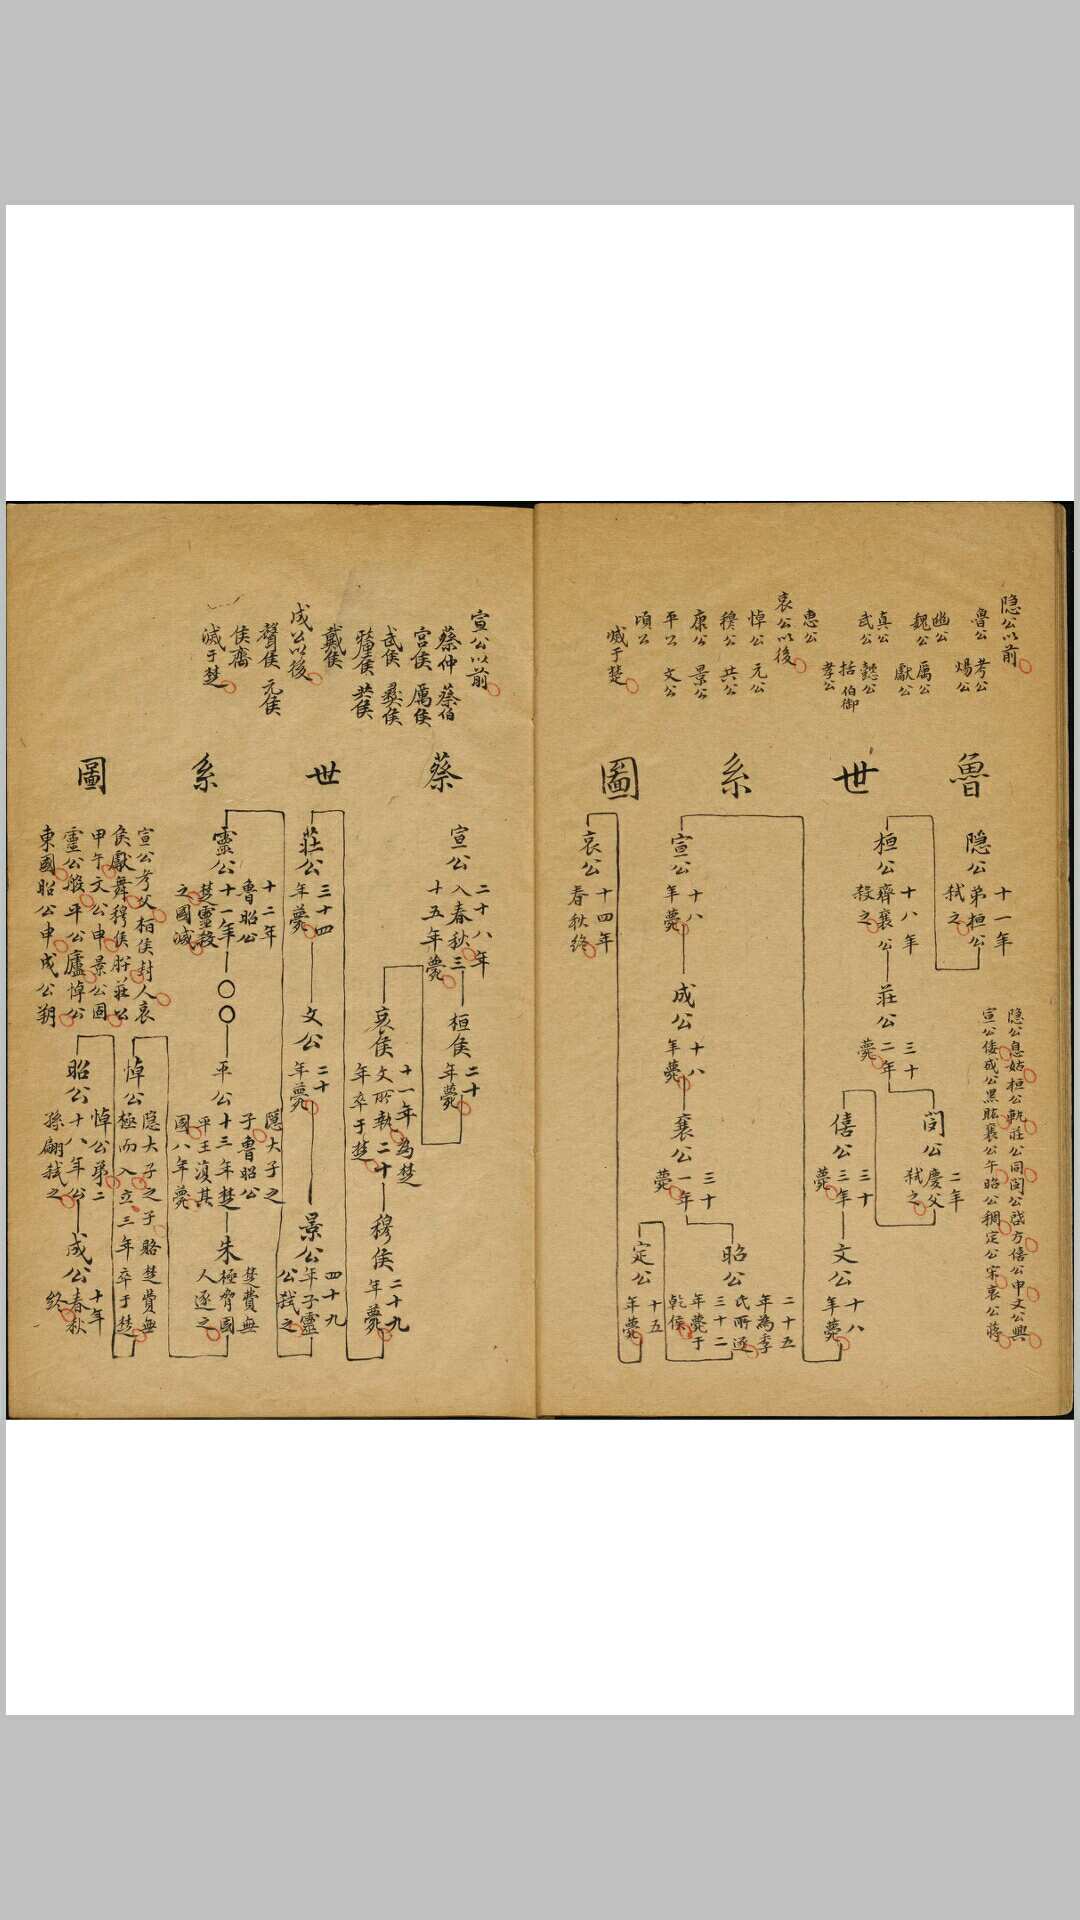 隐公以前
魯公 考公
煬公
幽公
魏公 厲公
獻公
真公
武公 懿公
括 伯御
孝公
惠公
哀公以後
悼公 元公
穆公 共公
康公 景公
平公 文公
頃公
滅于楚
魯世系圖
隐公息姑桓公軌莊公同閔公啓方僖公申文公興
宣公倭成公黑肱襄公午昭公稠定公宋哀公蔣
隐公
十一年
弟桓公
弒之
桓公
十八年
齊襄公
殺之
莊公
三十
二年
薨
閔公
二年
慶父
弒之
僖公
三十
三年
薨
文公
十八
年薨
宣公
十八
年薨
成公
十八
年薨
襄公
三十
一年
薨
昭公
二十五
年為季
氏所逐
三十二
年薨于
乾侯
定公
十五
年薨
哀公
十四年
春秋終
宣公以前
蔡仲 蔡伯
宮侯 厲侯
武侯 夷侯
釐侯 共侯
戴侯
成公以後
聲侯 元侯
侯齊
滅于楚
蔡世系圖
宣公
二十八年
入春秋三
十五年薨
桓侯
二十
年薨
哀侯
十一年為楚
文所執二十
年卒于楚
穆侯
二十九
年薨
莊公
三十四
年薨
文公
二十
年薨
景公
四十九
年子靈
公弒之
靈公
十二年
魯昭公
十一年
楚靈殺
之國滅
〇〇
平公
隱大子之
子魯昭公
十三年楚
平王復其
國八年薨
朱
楚費無
極脅國
人逐之
悼公
隐大子之子賂楚費無
極而入立三年卒于楚
昭公
悼公弟二
十八年公
孫翩弒之
成公
十年
春秋
終
宣公考父桓侯封人哀
侯獻舞穆侯肸莊公
甲午文公申景公固
靈公般平公廬悼公
東國昭公申成公朔